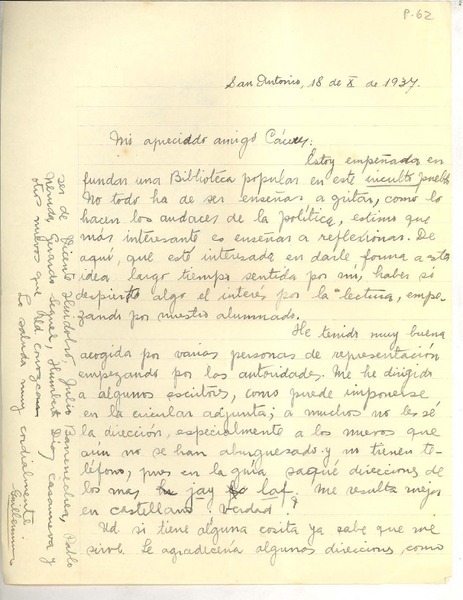 P-62
San Antonio, 18 de X de 1937.
Mi apreciado amigo Cáceres:
Estoy empeñada en
fundar una Biblioteca popular en este inculto pueblo
No todo ha de ser enseñar a gritar, como lo
hacen los audaces de la política, estimo que
más interesante es enseñar a reflexionar. De
aquí, que esté interesada en darle forma a esta
idea largo tiempo sentida por mí, haber si
despierto algo el interés por la "lectura, empe-
zando por nuestro alumnado.
He tenido muy buena
acogida por varias personas de representación
empezando por las autoridades. Me he dirigido
a algunos escritores, como puede imponerse
en la circular adjunta; a muchos no les sé
la dirección, especialmente a los nuevos que
aún no se han aburguesado y no tienen te-
léfono, pues en la guía saqué direcciones de
los mas jay laf. Me resulta mejor
en castellano verdad?
Ud si tiene alguna cosita ya sabe que me
sirve. Le agradecería algunas direcciones, como
ser de Vicente Huidobro, Julio Barrenechea, Pablo
Neruda, Gerardo Seguel, Humberto Díaz Casanueva y
otros nuevos que Ud conozca.
Lo saluda muy cordialmente.
Guillermina